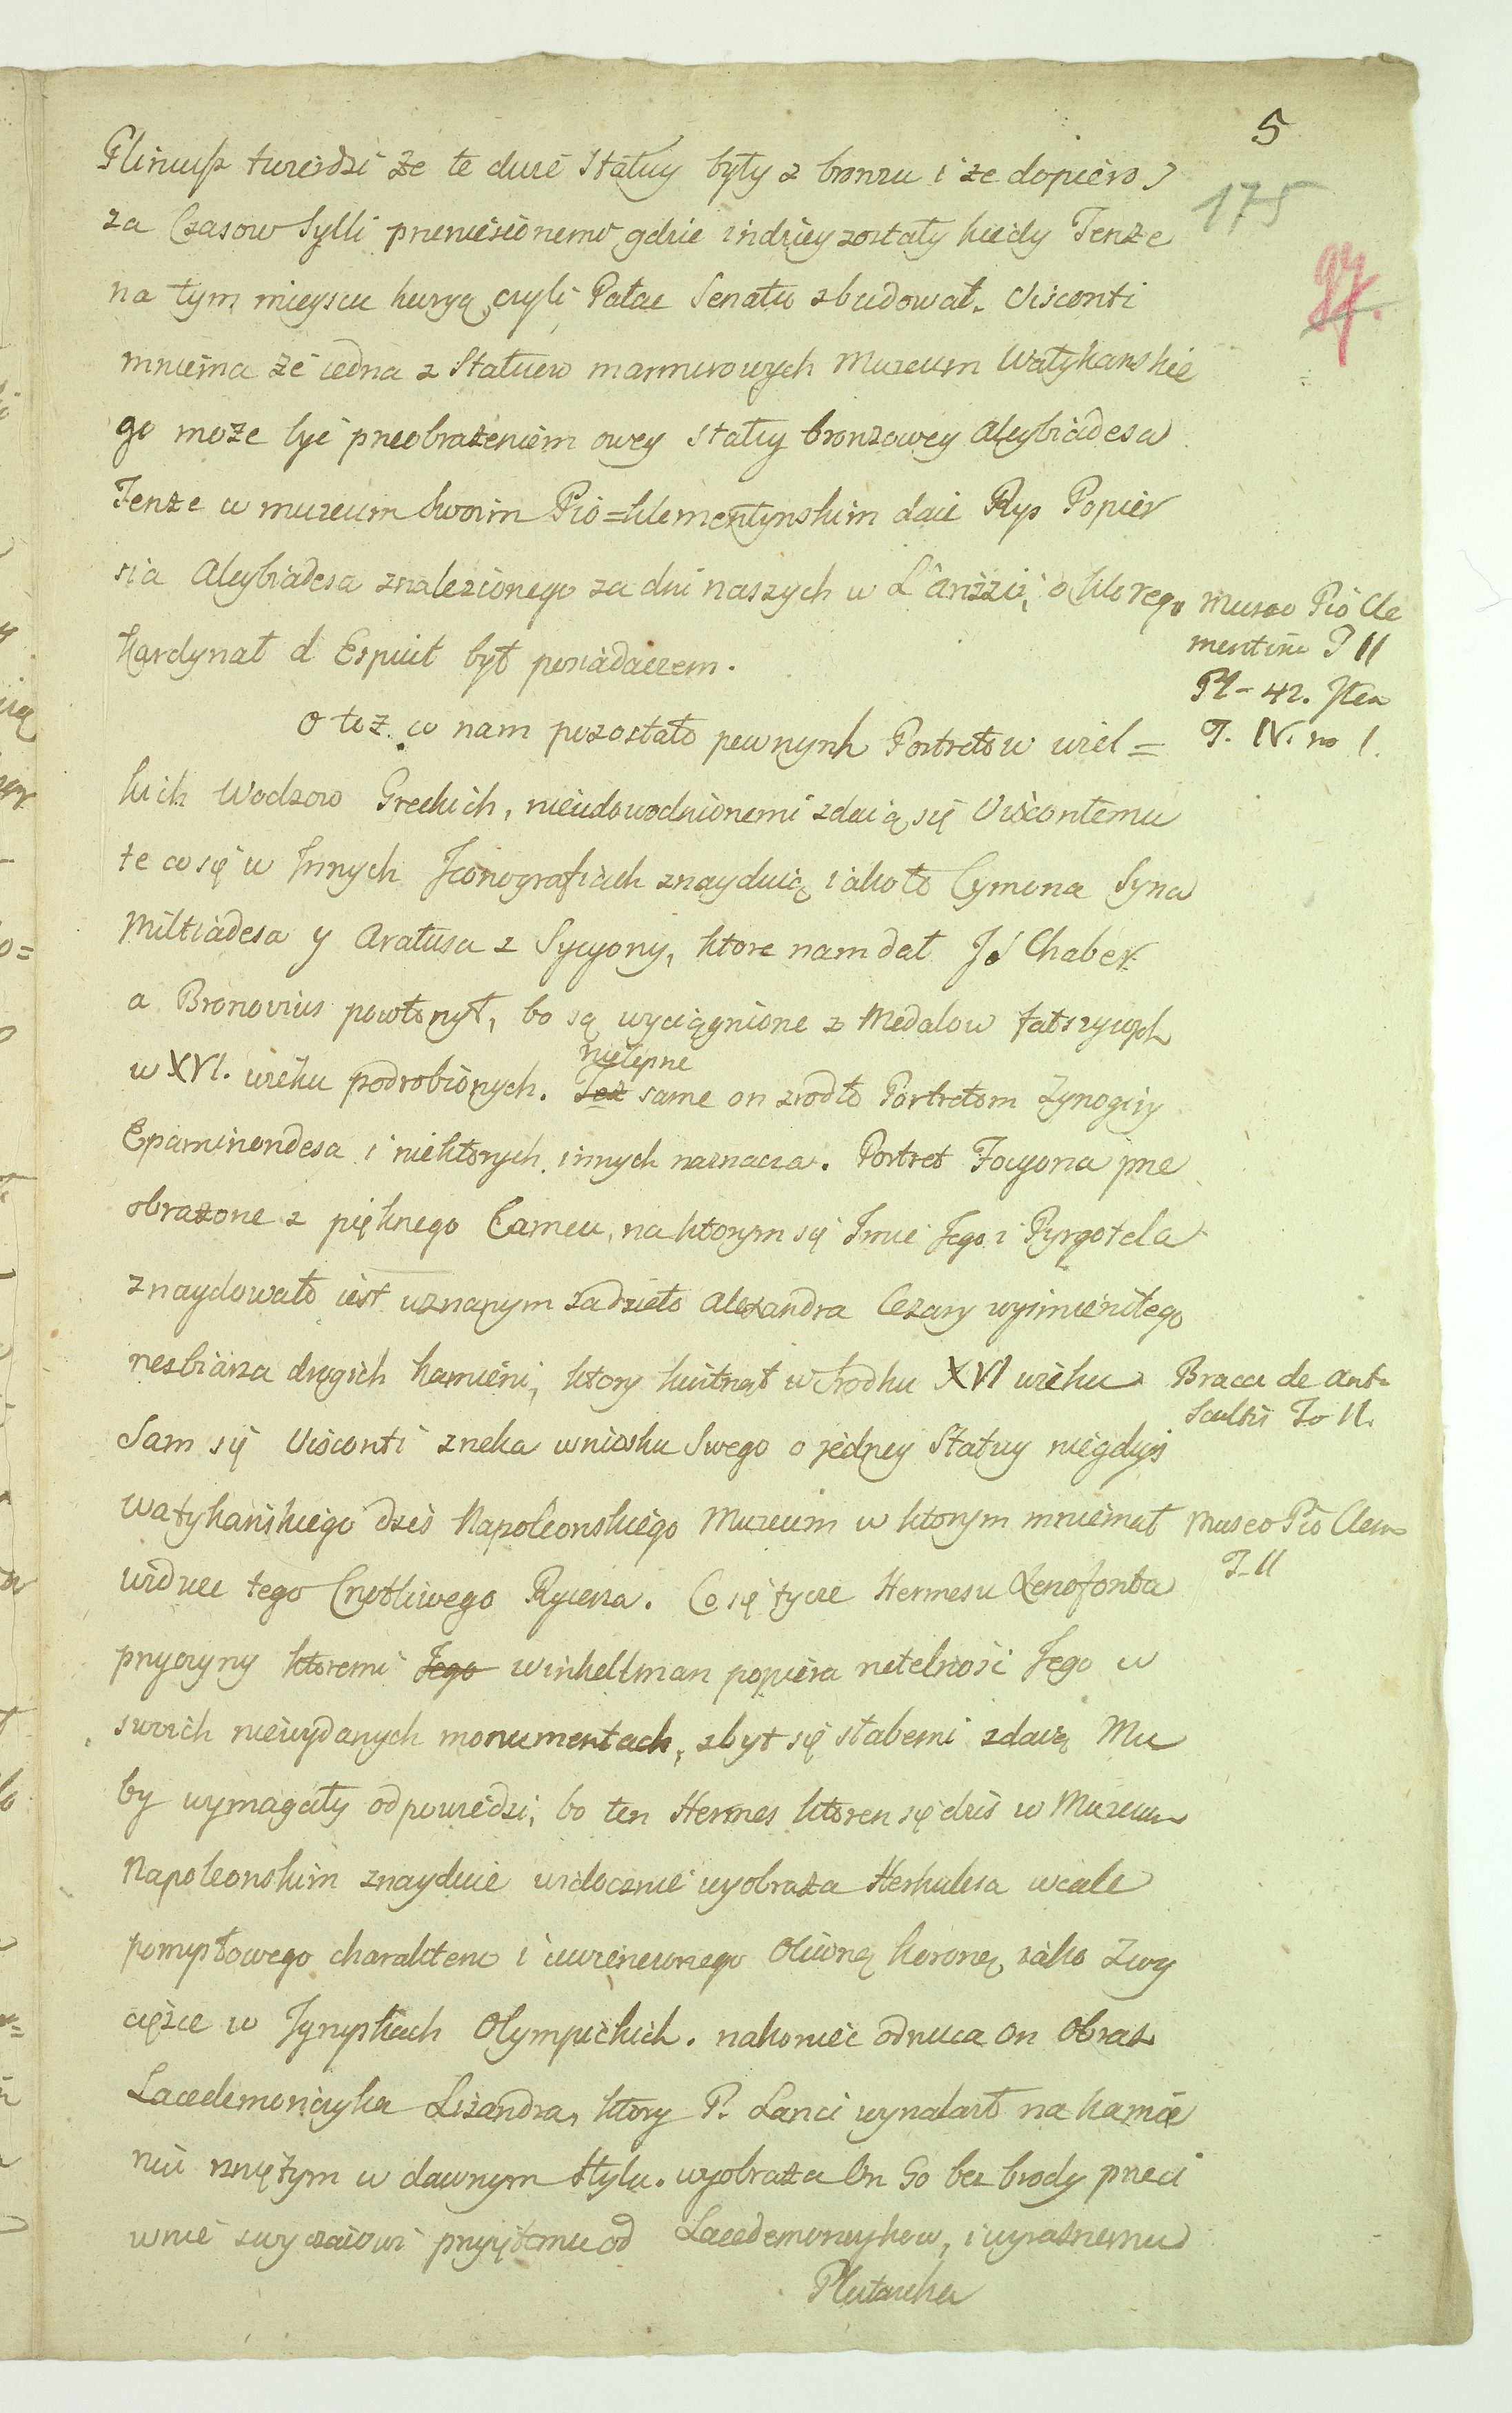 5
175
97.
Pliniusz twierdzi że te dwie Statuy były z bronzu i że dopiero
za Czasow Sylli przeniesionemi gdzie indziey zostały kiedy Tenże
na tym mieyscu kuryą czyli Pałac Senatu zbudował. Visconti
mniema że iedna z Statuew marmurowych Muzeum Watykanskie
go może być przeobrażeniem owey statuy bronzowey Alcybiadesa
Tenże w muzeum Swoim Pio=Klementynskim daie Rys Popier
sia Alcybiadesa znalezionego za dni naszych w L'Arizzii, ktorego
Kardynał d Espuit był posiadaczem.
Museo Pio Cle
mentino T II
Pl - 42. Item
T. IV. no 1.
Otoż co nam pozostało pewnych Portretow wiel=
kich Wodzow Greckich, nieudowodnionemi zdaią się Viscontemu
te co się w Innych Iconografiach znayduią iakoto Cymona Syna
Miltiadesa y Aratusa z Sycyony, ktore nam dał Chaber
a Bronovius powtorzył, bo są wyciągnione z Medalow fałszywych
w XVI. wieku podrobionych. Też niepne same on zrodło Portretom Zynogiry
Epaminondesa i niektorych innych naznacza. Portret Focyona prze
obrażone z pięknego Cameu, na ktorym się Imie Jego i Pyrgotela
znaydowało iest uznanym za dzieło Alexandra Cezary wyśmienitego
rzezbiarza drogich kamieni, ktory kwitnął w środku XVI wieku
Bracci de Ant.
Scultis To II.
Sam się Visconti zrzeka wniosku Swego o jedney Statuy niegdyś
Watykańskiego dziś Napoleonskiego Muzeum w ktorym mniemał
Museo Pio Clem
T. II
widzieć tego Cnotliwego Rycerza. Co się tycze Hermesu Xenofonta
przyczyny ktoremi Jego Winkellman popiera rzetelność Jego w
swoich niewydanych monumentach, zbyt się słabemi zdaią Mu
by wymagały odpowiedzi, bo ten Hermes ktoren się dziś w Muzeum
Napoleonskim znayduie widocznie wyobraża Herkulesa wcale
pomysłowego charakteru i uwieńczonego Oliwną koroną, iako Zwy
cięzce w Igrzyskach Olympickich. nakoniec odrzuca On Obraz
Lacedemończyka Lizandra, ktory P. Lanci wynalazł na kamie
niu rzniętym w dawnym Stylu. wyobraża On Go bez brody przeci
wnie zwyczaiowi przyiętemu od Lacedemonczykow, i wyraźnemu
Plutarka